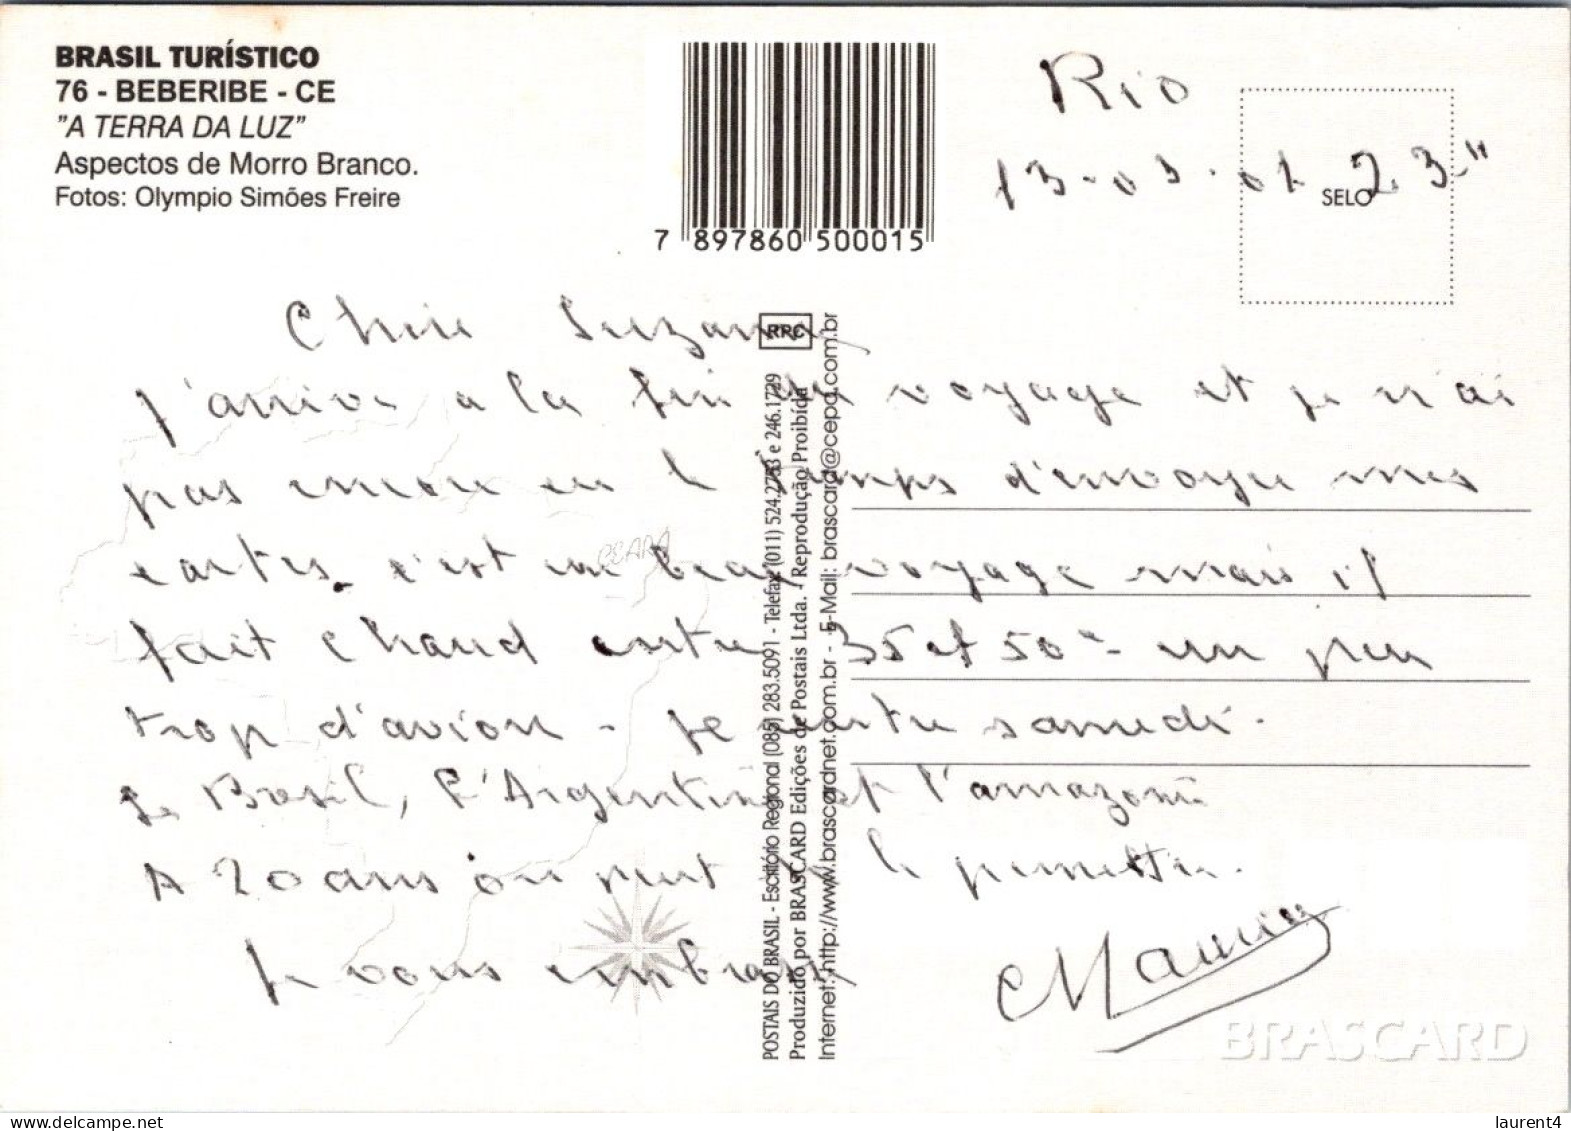 BRASIL TURÍSTICO
76 - BEBERIBE - CE
"A TERRA DA LUZ"
Aspectos de Morro Branco.
Fotos: Olympio Simões Freire
7 897860 500015
Rio
13-03-01 23"
SELO
Chère Suzanne
J'arrive a la fin du voyage et je n'ai
pas encore eu le temps d'envoyer mes
cartes. c'est un beau voyage mais il
fait chaud entre 35 et 50° - un peu
trop d'avion - je rentre samedi.
Le Bresil, l'Argentine et l'amazonie
A 20 ans on peut se le permettre.
Je vous embrasse
CEARÁ
RPC
POSTAIS DO BRASIL - Escritório Regional (085) 283.5091 - Telefax (011) 524.2763 e 246.1729
Produzido por BRASCARD Edições de Postais Ltda. - Reprodução Proibida
Internet: http://www.brascardnet.com.br - E-Mail: brascard@cepa.com.br
BRASCARD
laurent4
delcampe.net